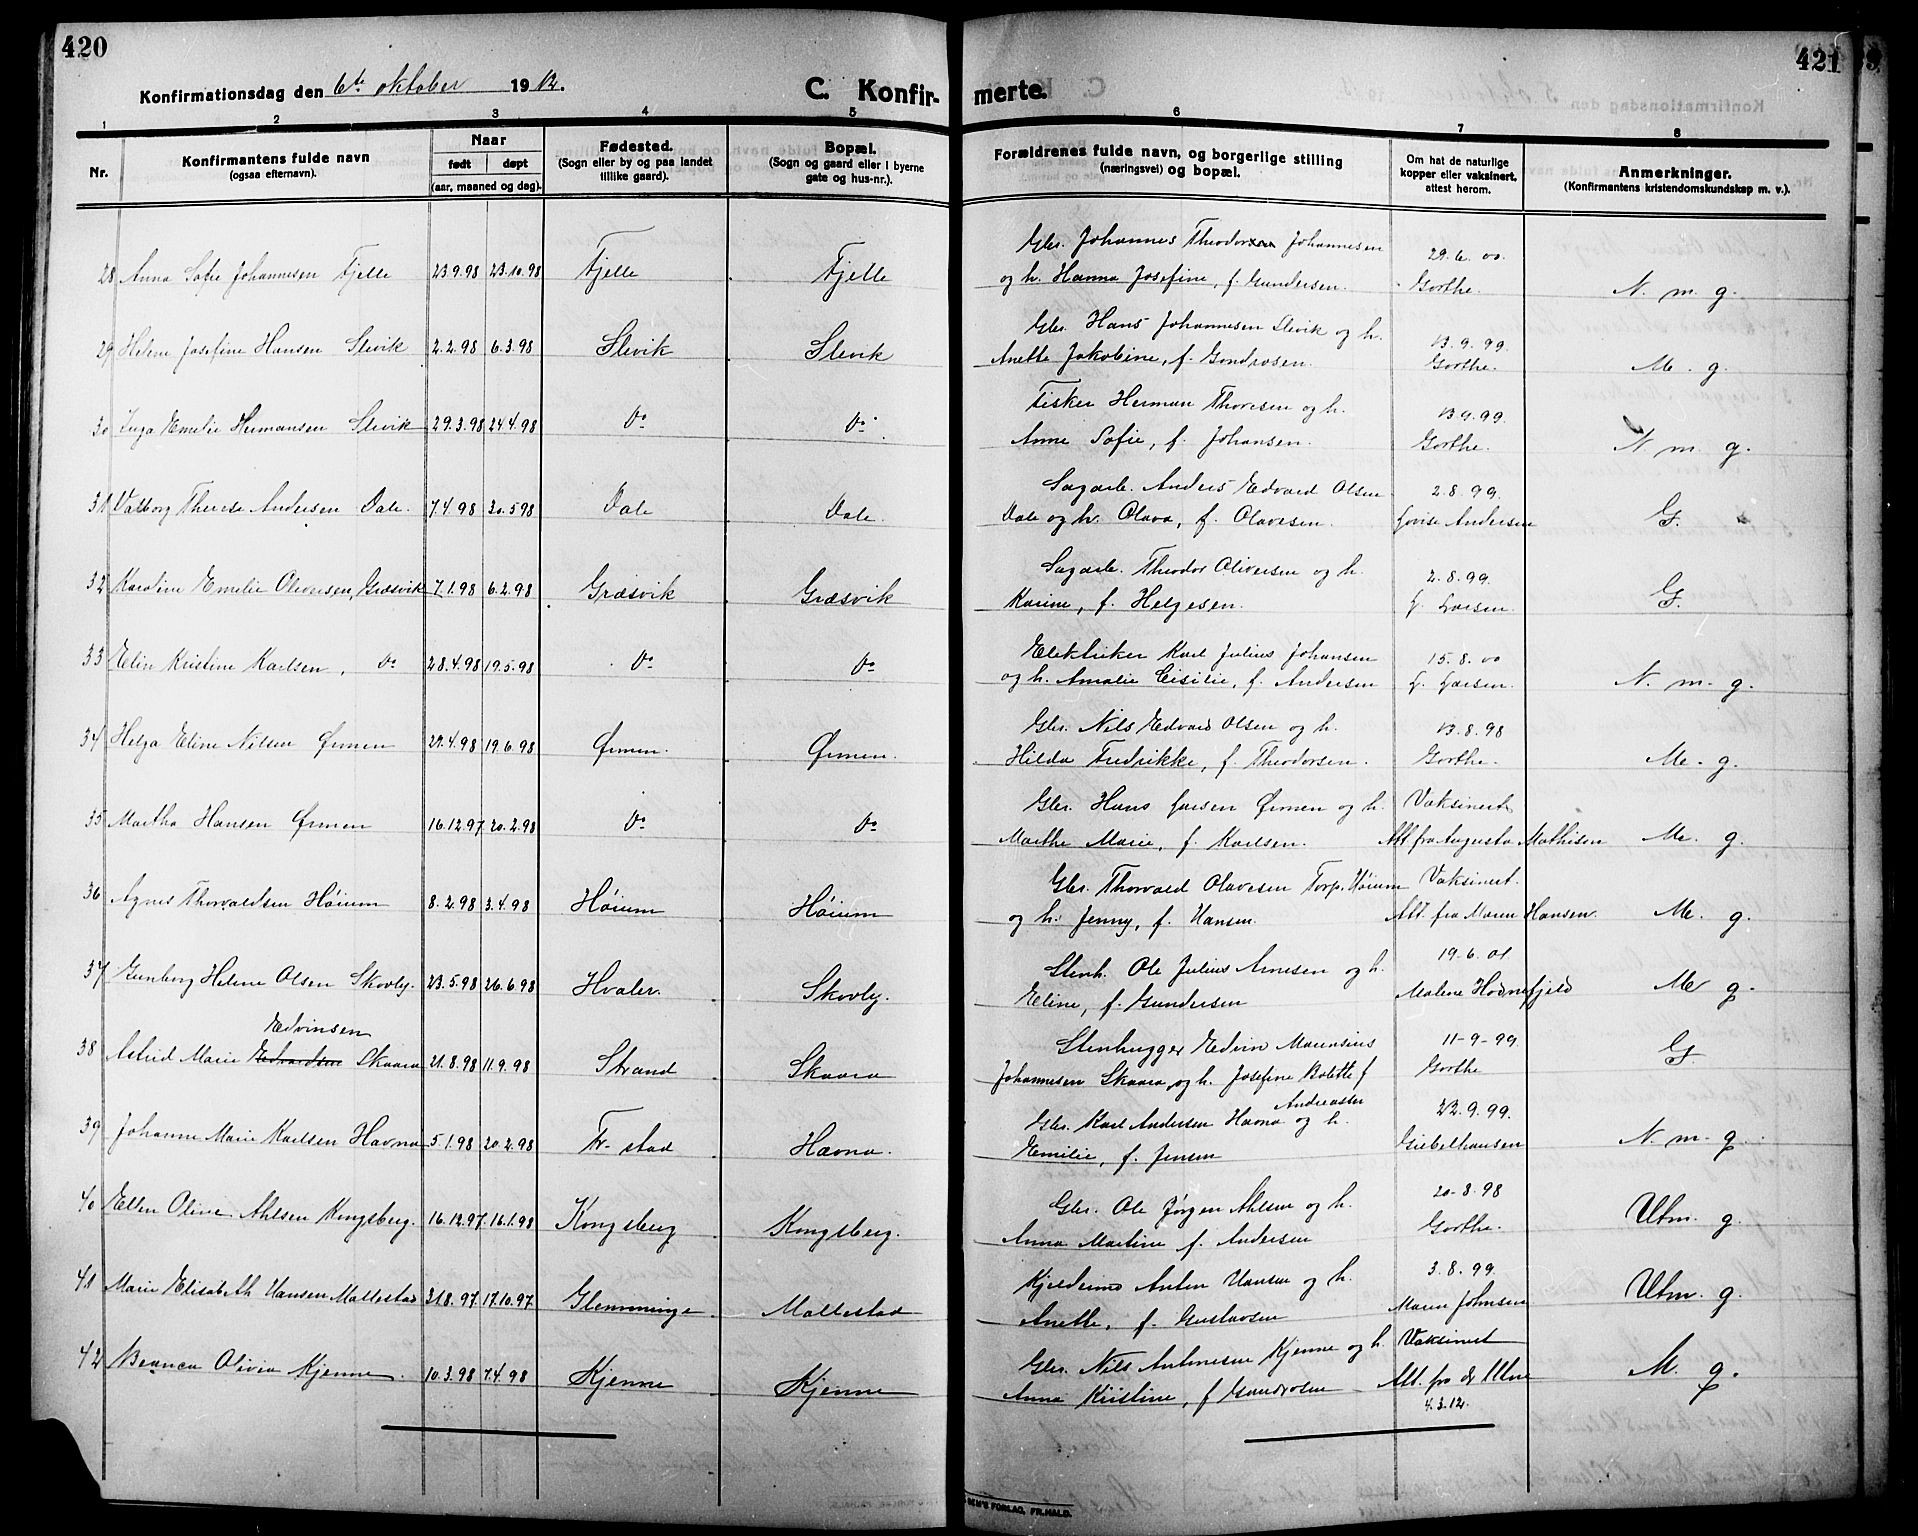 420
421
Konfirmationsdag den 6te oktober 1912.
C. Konfirmerte.
1 2 3 4 5 6 7 8
Nr.
Konfirmantens fulde navn
(ogsaa efternavn).
Naar
født døpt
(aar, maaned og dag).
Fødested.
(Sogn eller by og paa landet
tillike gaard).
Bopæl.
(Sogn og gaard eller i byerne
gate og hus-nr.).
Forældrenes fulde navn, og borgerlige stilling
(næringsvei) og bopæl.
Om hat de naturlige
kopper eller vaksinert,
attest herom.
Anmerkninger.
(Konfirmantens kristendomskundskap m. v.).
28 Anna Sofie Johannesen Fjelle 23.9.98 23.10.98 Fjelle Fjelle
Gbr. Johannes Theodor Johannesen
og h. Hanna Josefine, f. Gundersen.
29.6.00.
Gorthe.
N. m. g.
29 Helene Josefine Hansen Slevik 2.2.98 6.3.98 Slevik Slevik
Gbr. Hans Johannesen Slevik og h.
Anette Jakobine, f. Gondrosen.
13.9.99.
Gorthe.
M. g.
30 Inga Emelie Hermansen Slevik 29.3.98 24.4.98 Do Do
Fisker Herman Thoresen og h.
Anne Sofie, f. Johansen.
13.9.99.
Gorthe.
N. m. g.
31 Valborg Therese Andersen Dale. 7.4.98 30.5.98 Dale Dale.
Sagarb. Anders Edvard Olsen
Dale og h. Olava, f. Olavesen.
2.8.99.
Lovise Andersen
G.
32 Karoline Emelie Oliversen, Græsvik 7.1.98 6.2.98 Græsvik Græsvik
Sagarb. Theodor Oliversen og h.
Karine, f. Helgesen.
2.8.99.
L. Larsen.
G.
33 Elin Kristine Karlsen, Do 28.4.98 19.5.98 Do Do
Elektriker Karl Julius Johansen
og h. Amalie Cisilie, f. Andersen
15.8.00
L. Larsen.
N. m. g.
34 Helga Eline Nilsen Ørmen 29.4.98 19.6.98 Ørmen. Ørmen.
Gbr. Nils Edvard Olsen og h.
Hilda Fredrikke, f. Theodorsen.
13.8.98
Gorthe.
M. g.
35 Martha Hansen Ørmen 16.12.97 20.2.98 Do Do
Gbr. Hans Larsen Ørmen og h.
Marthe Marie, f. Karlsen.
Vaksinert
Att fra Augusta Mathisen
M. g.
36 Agnes Thorvaldsen Høium 8.2.98 3.4.98 Høium Høium
Gbr. Thorvald Olavesen Torp, Høium
og h. Jenny, f. Hansen.
Vaksinert.
Att. fra Maren Hansen.
M. g.
37 Gunborg Helene Olsen Skovly. 23.5.98 26.6.98 Hvaler. Skovly.
Stenh. Ole Julius Arnesen og h.
Eline, f. Gundersen
19.6.01
Malene Hornefjeld
M. g.
Edvinsen
38 Astrid Marie Edvardsen Skaara 21.8.98 11.9.98 Strand Skaara
Stenhugger Edvin Maurisius
Johannesen Skaara og h. Josefine Bolette f
Andreasdtr
11-9-99
Gorthe
G
39 Johanne Marie Karlsen Havna 5.1.98 20.2.98 Fr.stad Havna.
Gbr. Karl Andersen Havna og h.
Emilie, f. Jensen
22.9.99.
Giebelhausen
N. m. g.
40 Ellen Oline Ahlsen Kongsberg. 16.12.97. 16.1.98 Kongsberg Kongsberg.
Gbr. Ole Jørgen Ahlsen og h.
Anna Martine f. Andersen
20-8.98
Gorthe.
Utm. g.
41 Marie Elisabeth Hansen Mallestad 31.8.97 17.10.97 Glemminge Mallestad
Anton Hansen og h.
Anette, f. Gustavsen
3.8.99.
Maren Johnsen
Utm. g.
42 Bianca Olivia Kjenne. 10.3.98 7.4.98 Kjenne Kjenne
Gbr. Nils Antonesen Kjenne og h.
Anna Kristine, f Gundrosen
Vaksinert
Att. fra dr
4.3.12.
M. g.
FORLAG, FR.HALD.